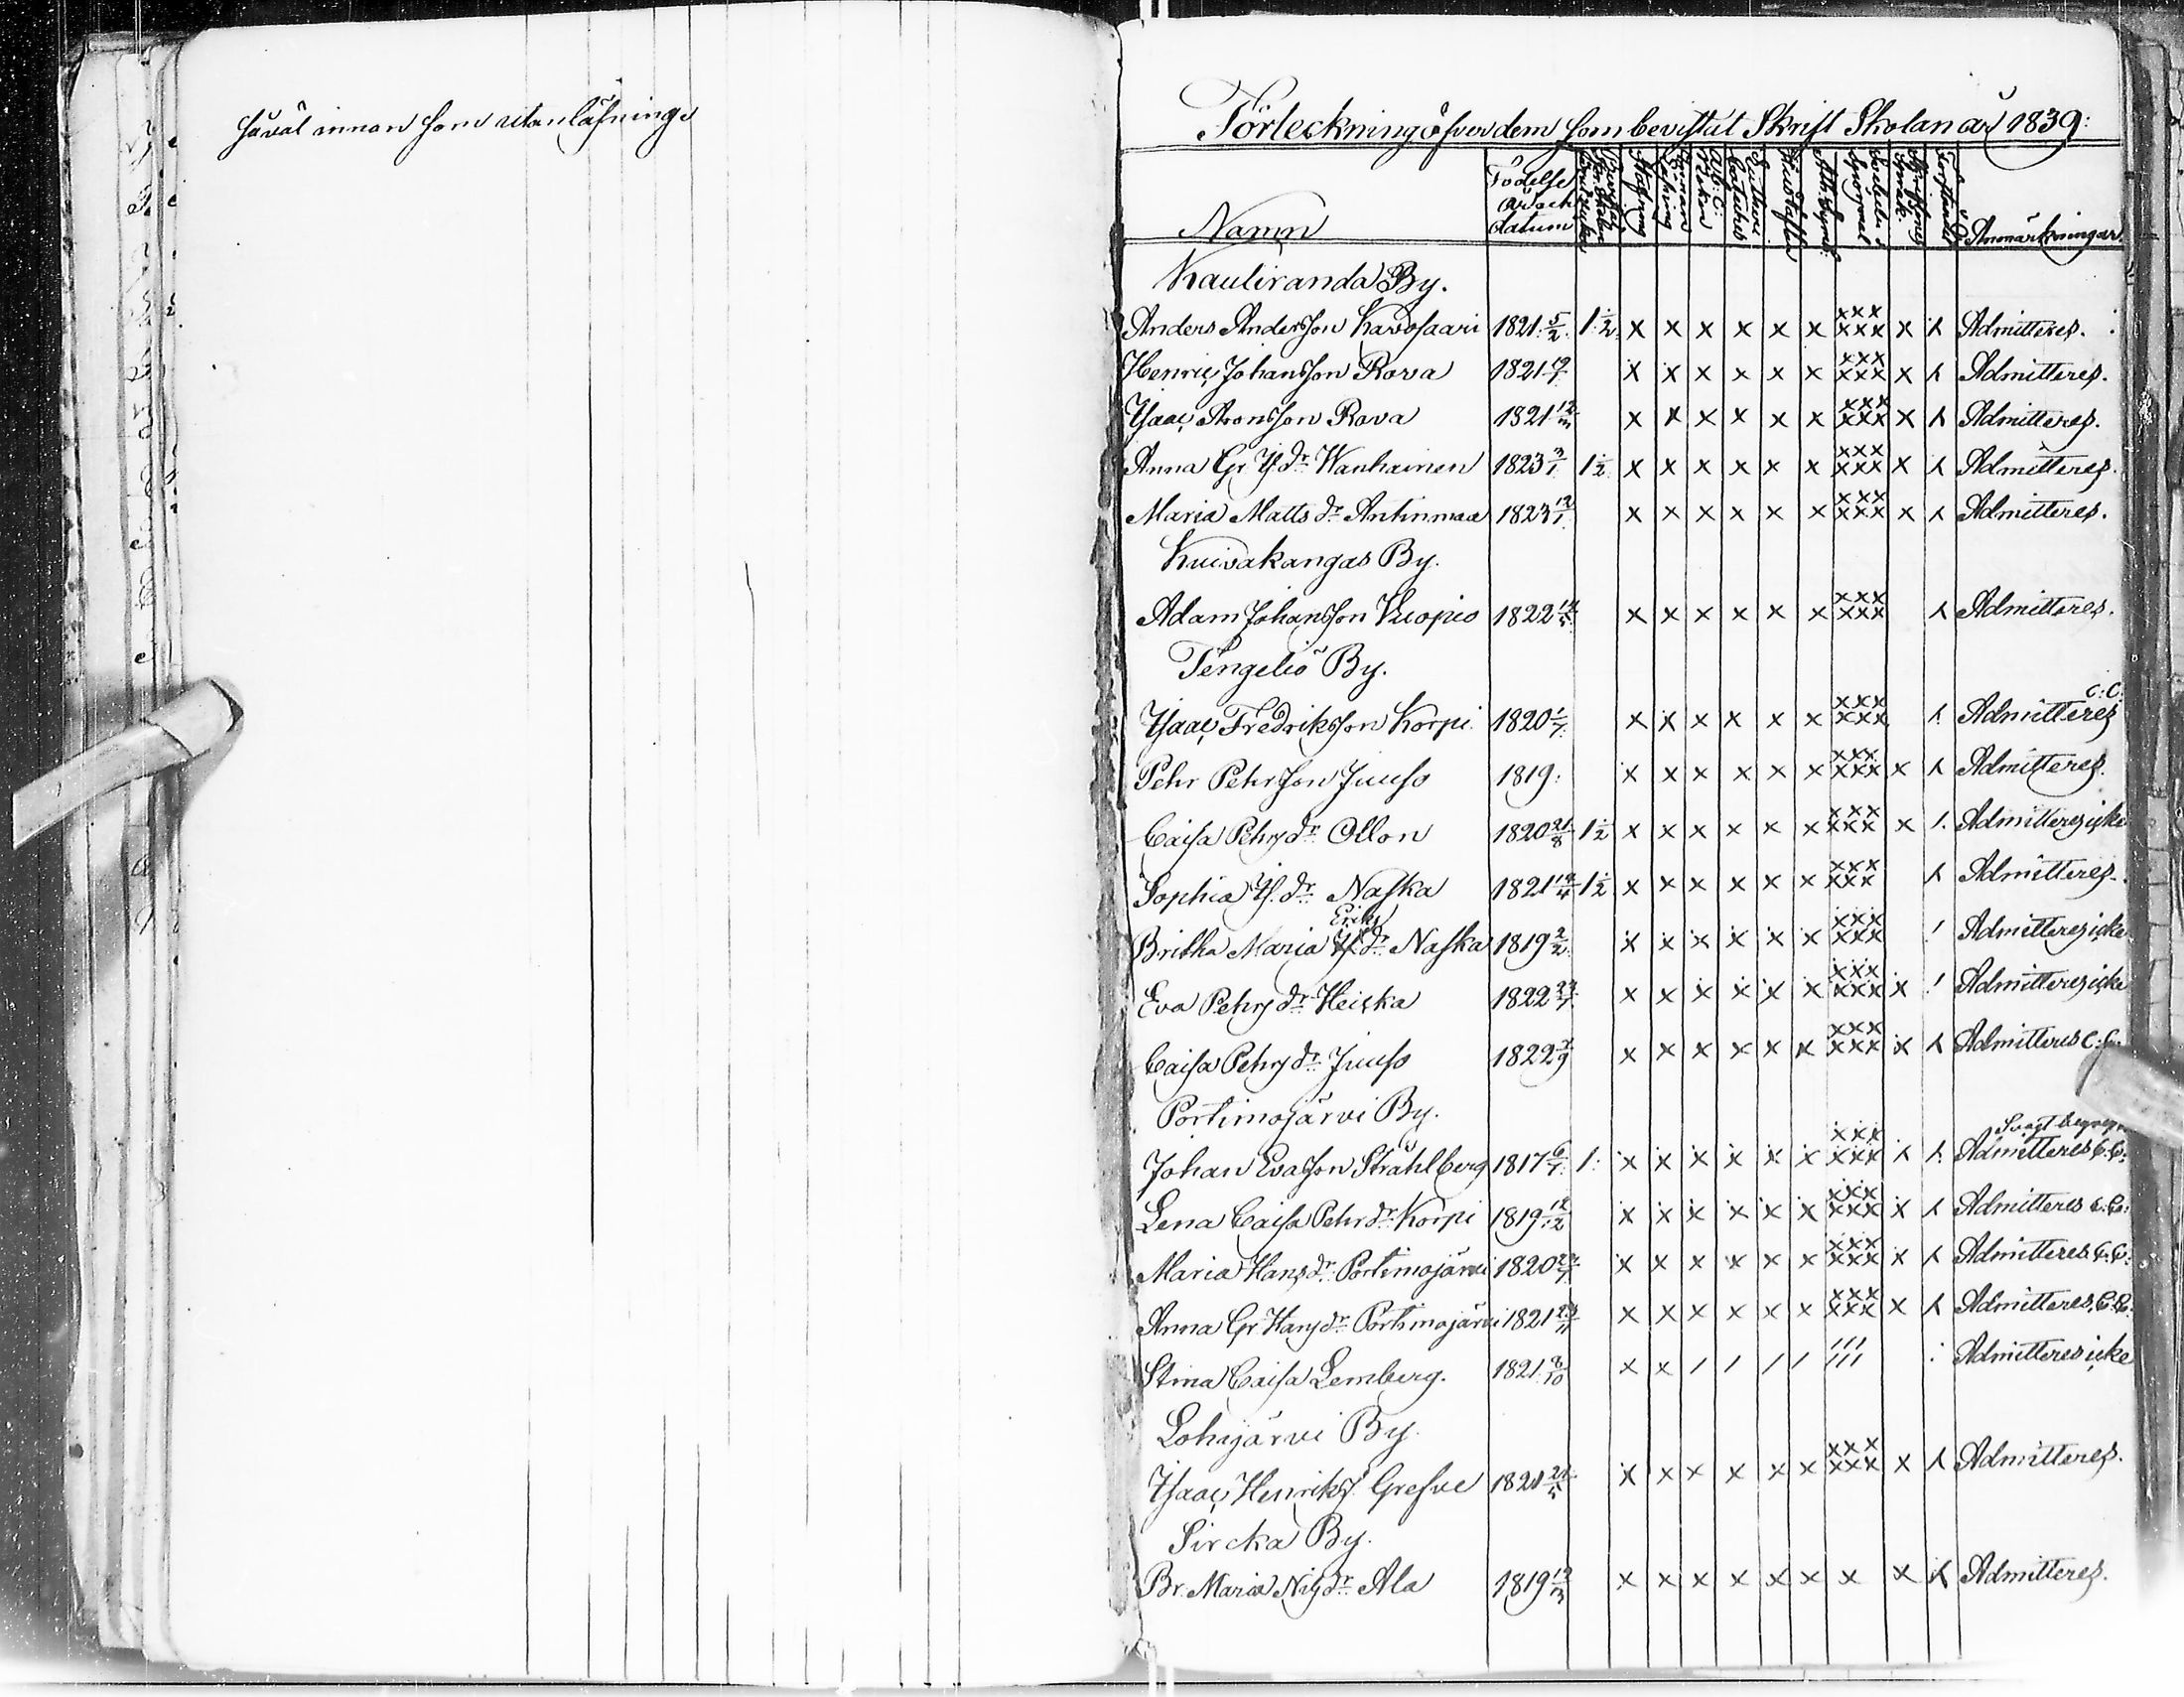 såväl innan som utanläsning
Förteckning öfver dem som bevistat Skrift Skolan år 1839:
Namn Födelse år och datum Stafning Innan Läsning A.B.C. Boken Lutheri Catechis Hustaflan Athan. Symb. Förstånd Anmärkningar.
Kauliranda By.
Anders Andersson Karosaari 1821 5/2 1 1/2 x x x x x x xxx xxx x x Admitteres.
Henric Johansson Rova 1821 x x x x x x xxx xxx x x Admitteres.
Isaac Aronsson Rova 1821 12/3 x x x x x x xxx xxx x x Admitteres.
Anna Gr. Is.dr Wanhainen 1823 3/1 1 1/2 x x x x x x xxx xxx x x Admitteres.
Maria Matts dr Antinmaa 1823 12/1 x x x x x x xxx xxx x x Admitteres.
Kuivakangas By.
Adam Johansson Kuopio 1822 x x x x x x xxx xxx x Admitteres.
Tengeliö By.
Isaac Fredriksson Korpi 1820 1/7 x x x x x x xxx xxx /. Admitteres C:C:
Pehr Pehrsson Juuso 1819: x x x x x x xxx xxx x x Admitteres.
Caisa Pehrs dr Ollon 1820 21/8 1 1/2 x x x x x x xxx xxx x /. Admitteres icke
Sophia Is. dr Naska 1821 1 1/2 x x x x x x xxx xxx x Admitteres.
Britha Maria Eriks dr Naska 1819 2/2 x x x x x x xxx xxx / Admitteres icke
Eva Pehrs dr Heiska 1822 x x x x x x xxx xxx x / Admitteres icke
Caisa Pehrs dr Juuso 1822 x x x x x x xxx xxx x x Admitteres C:C:
Portimojärvi By.
Johan Evasson Stråhlberg 1817 6/7 1: x x x x x x xxx xxx x x Svagt begrep Admitteres C:C:
Lena Caisa Pehrs dr Korpi 1819 12/12 x x x x x x xxx xxx x x Admitteres C:C:
Maria Hans dr Portimojärvi 1820 x x x x x x xxx xxx x x Admitteres C:C:
Anna Gr. Hans dr Portimojärvi 1821 23/11 x x x x x x xxx xxx x x Admitteres C:C:
Stina Caisa Lemberg. 1821 8/10 x x / / / / /// /// Admitteres icke
Lohijärvi By.
Isaac Henriks. Grefve 1821 x x x x x x xxx xxx x x Admitteres.
Sircka By.
Br. Maria Nils dr Ala 1819 12/3 x x x x x x x x x Admitteres.